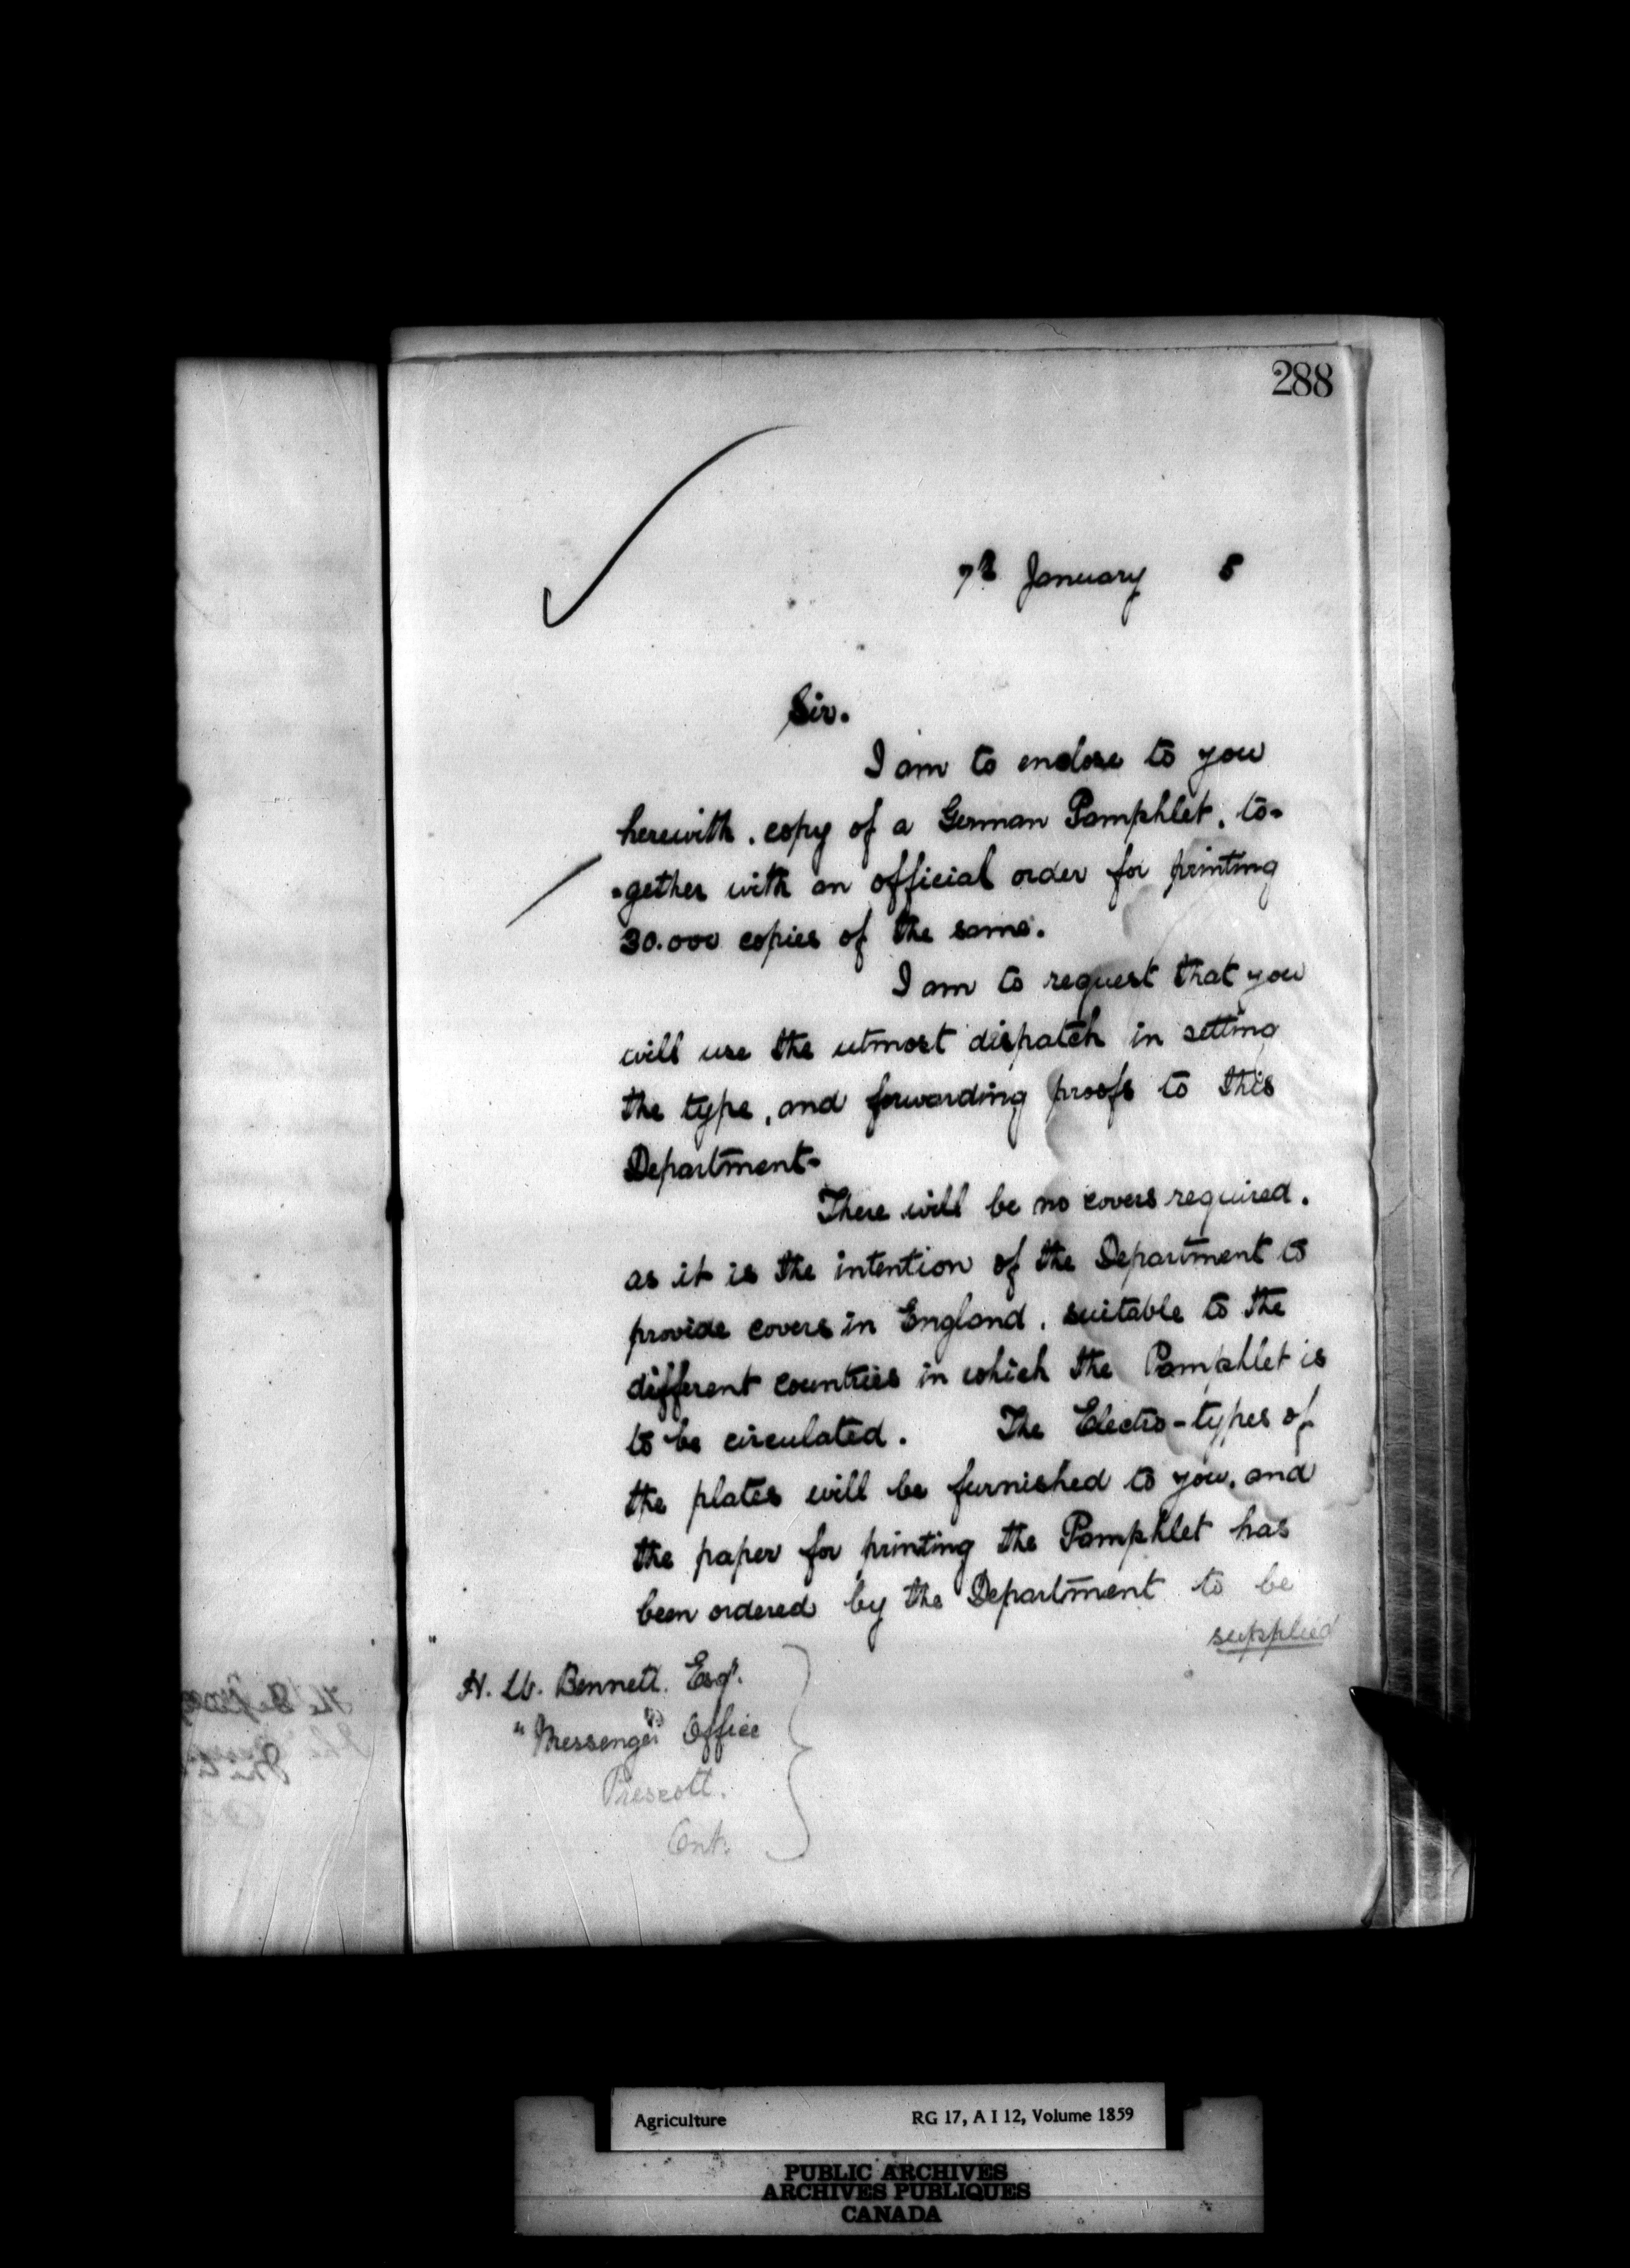 288
7th January 5
Sir.
I am to enclose to you
herewith, copy of a German Pamphlet, to-
-gether with an official order for printing
30.000 copies of the same.
I am to request that you
will use the utmost dispatch in setting
the type, and forwarding proofs to this
Department-
There will be no covers required.
as it is the intention of the Department to
provide covers in England, suitable to the
different countries in which the Pamphlet is
to be circulated. The Electro-types of
the plates will be furnished to you, and
the paper for printing the Pamphlet has
been ordered by the Department to be
supplied
H. W. Bennett. Esqr.
"Messenger" Office
Prescott.
Ont.
Agriculture RG 17, A I 12, Volume 1859
PUBLIC ARCHIVES
ARCHIVES PUBLIQUES
CANADA